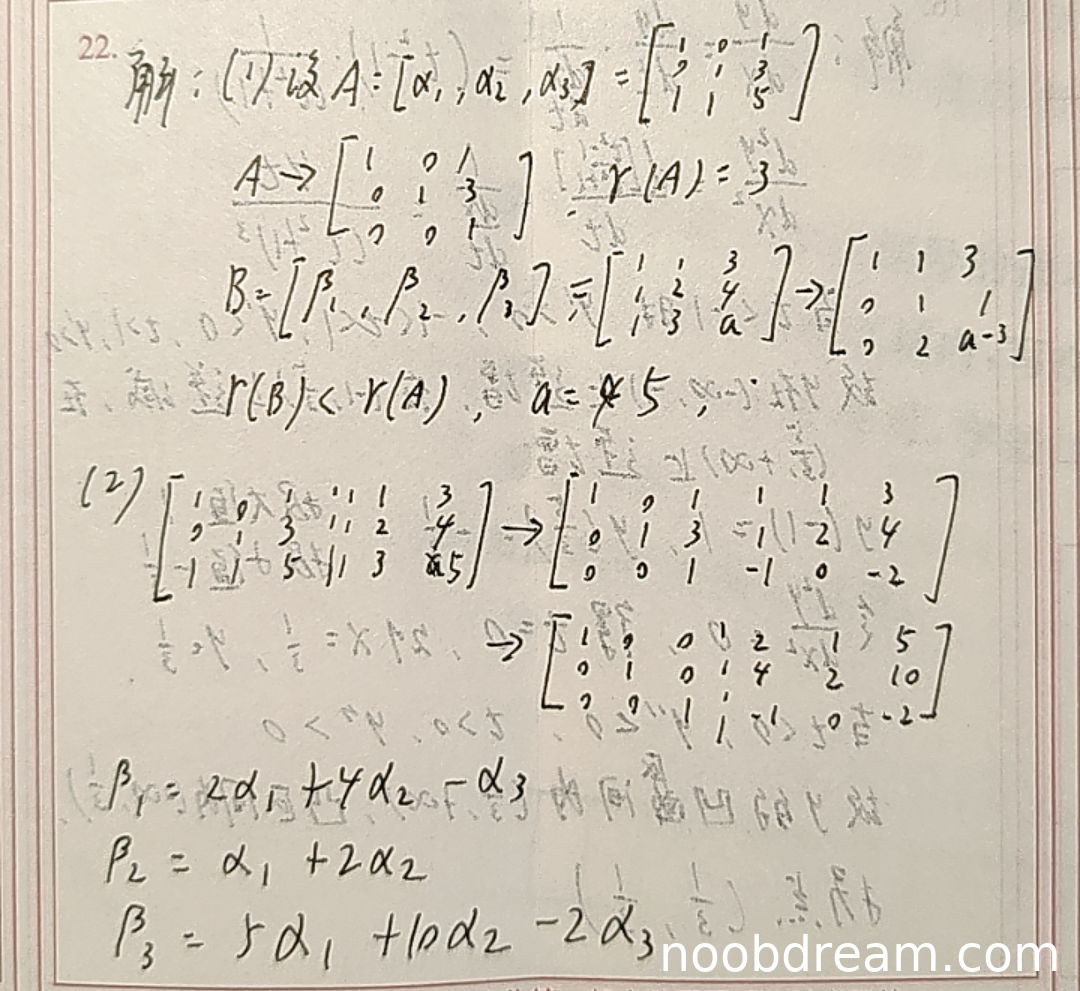 22.
解：(1) 设 A = [α₁, α₂, α₃] = [1 0 1; 0 1 3; 1 1 5]
A → [1 0 1; 0 1 3; 0 0 1] r(A) = 3
B = [β₁, β₂, β₃] = [1 1 3; 1 2 4; 1 3 a] → [1 1 3; 0 1 1; 0 2 a-3]
r(B) < r(A), a = 5,
(2) [1 0 1 | 1 1 3; 0 1 3 | 1 2 4; 1 1 5 | 1 3 5] → [1 0 1 1 1 3; 0 1 3 1 2 4; 0 0 1 -1 0 -2]
→ [1 0 0 | 2 1 5; 0 1 0 | 4 2 10; 0 0 1 | -1 0 -2]
β₁ = 2α₁ + 4α₂ - α₃
β₂ = α₁ + 2α₂
β₃ = 5α₁ + 10α₂ - 2α₃
noobdream.com